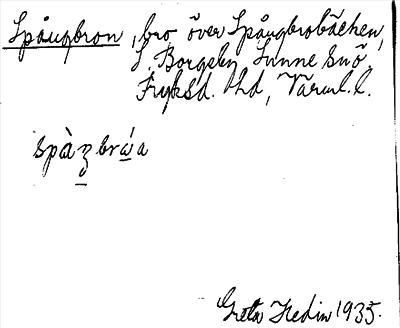 Spångbron, bro över Spångbrobäcken,
S. Borgeby Sunne snö.
Fryksd. hd, Värml. l.
spàʒbrúa
Greta Hedin 1935.